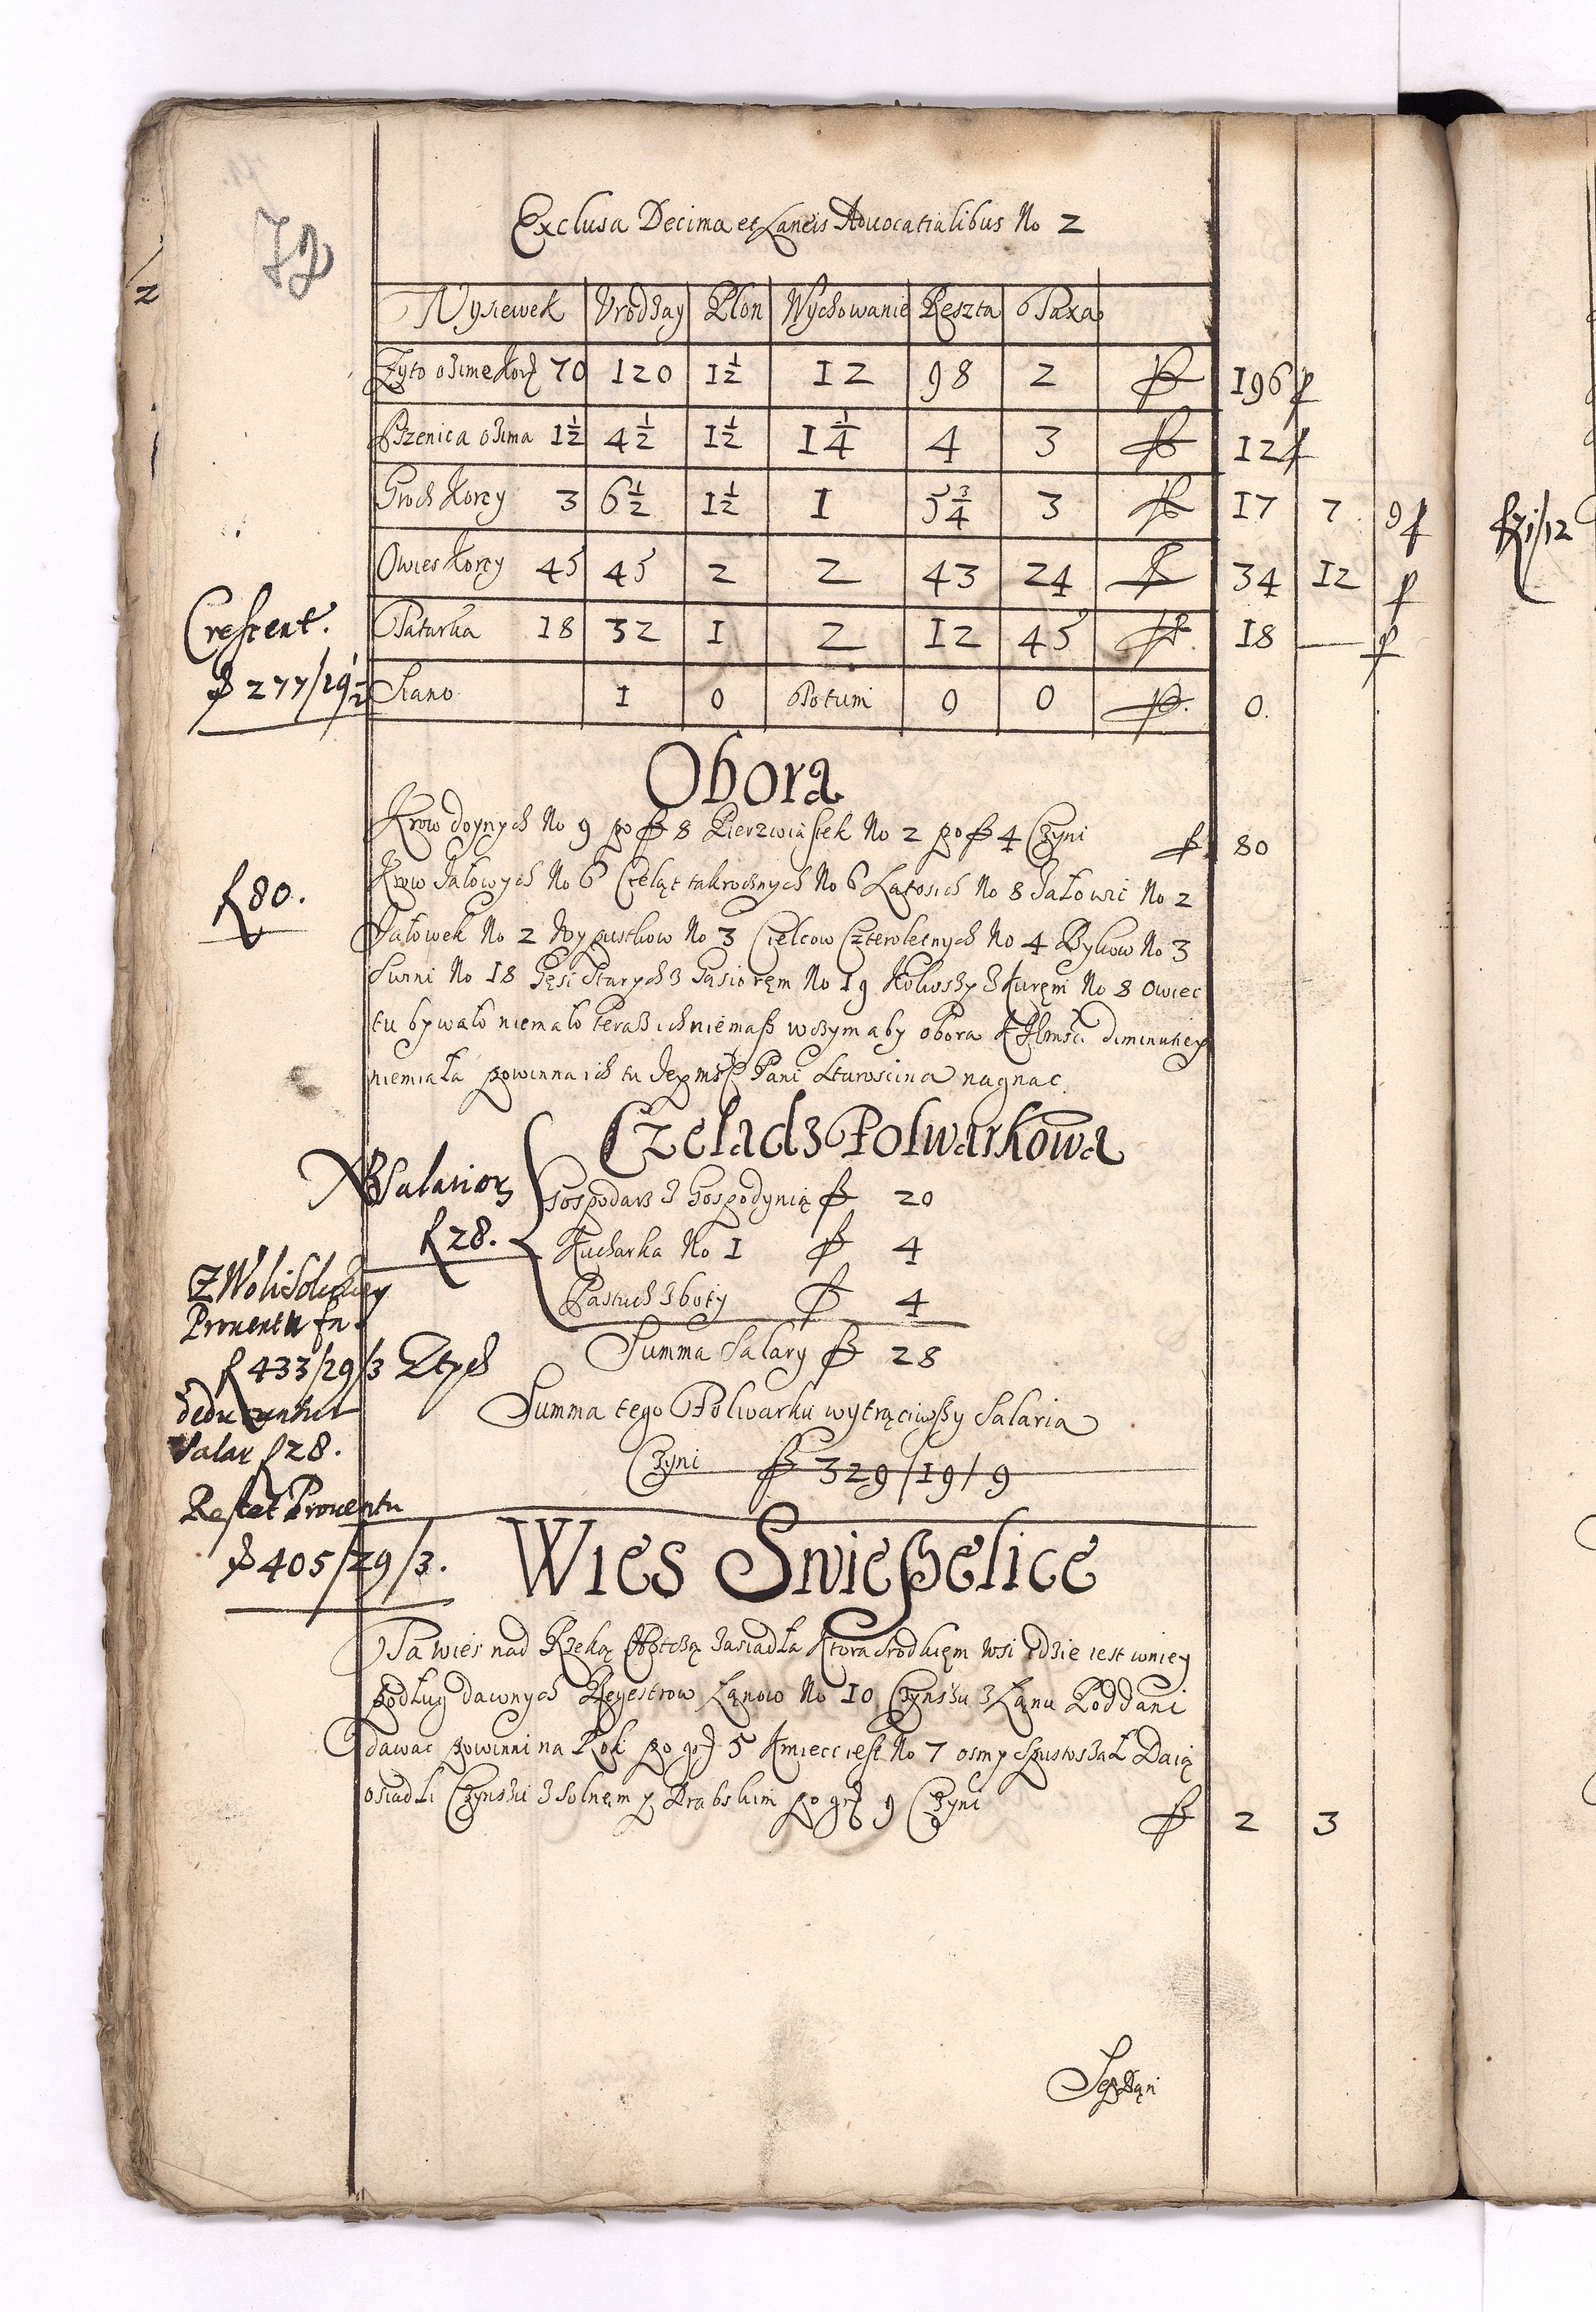 72
Exclusa Decima et Laneis Advocatialibus No 2
Wysiewek Vrodzay Plon Wychowanie Reszta Taxa
Zyto ozime Korz 70 120 1½ 12 98 2 fl 196
Pszenica ozima 1½ 4½ 1½ 1¼ 4 3 fl 12
Groch Korcy 3 6½ 1½ 1 5¾ 3 fl 17 7 9
Owies Korcy 45 45 2 2 43 24 fl 34 12
Tatarka 18 32 1 2 12 45 fl 18 —
Siano 1 0 Totum 0 0 fl 0
Crescent.
fl 277/19½
Obora
Krow doynych No 9 po fl 8 Pierzwiastek No 2 po fl 4 Czyni fl 80
f 80.
Krow Jałowych No 6 Cieląt takrocznych No 6 Latosich No 8 Jałowic No 2
Jałowek No 2 Wypustkow No 3 Cielcow Czteroletnych No 4 Bykow No 3
Swini No 18 Gęsi Starych z Gąsiorem No 19 Kokoszy z Kurem No 8 Owiec
tu bywało niemało teraz ich niemasz w czym aby obora diminutiey
niemiała powinna ich tu Jeymsc Pani Starościna nagnac
Czeladz Folwarkowa
NB Salarior
f 28.
Gospodarz z Gospodynią fl 20
Kucharka No 1 fl 4
Pastuch z boty fl 4
Summa Salary fl 28
Z Woli
Prouentu fn
f 433/29/3 Ztych
deducuntur
Salar f 28.
Restet Prouentu
fl 405/29/3.
Summa tego Folwarku wytrąciwszy Salaria
Czyni fl 329/19/9
Wies Swieszelice
Ta wies nad Rzeką zasiadła Ktora srodkiem wsi idzie iest w niey
podług dawnych Reyestrow Łanow No 10 Czynszu z Łanu Poddani
dawac powinni na Rok po gr 5 Kmieci iest No 7 osmy spustoszał Daią
osiadli Czynszu z solnem y Drabskim po gr 9 Czyni fl 2 3
f 71/12